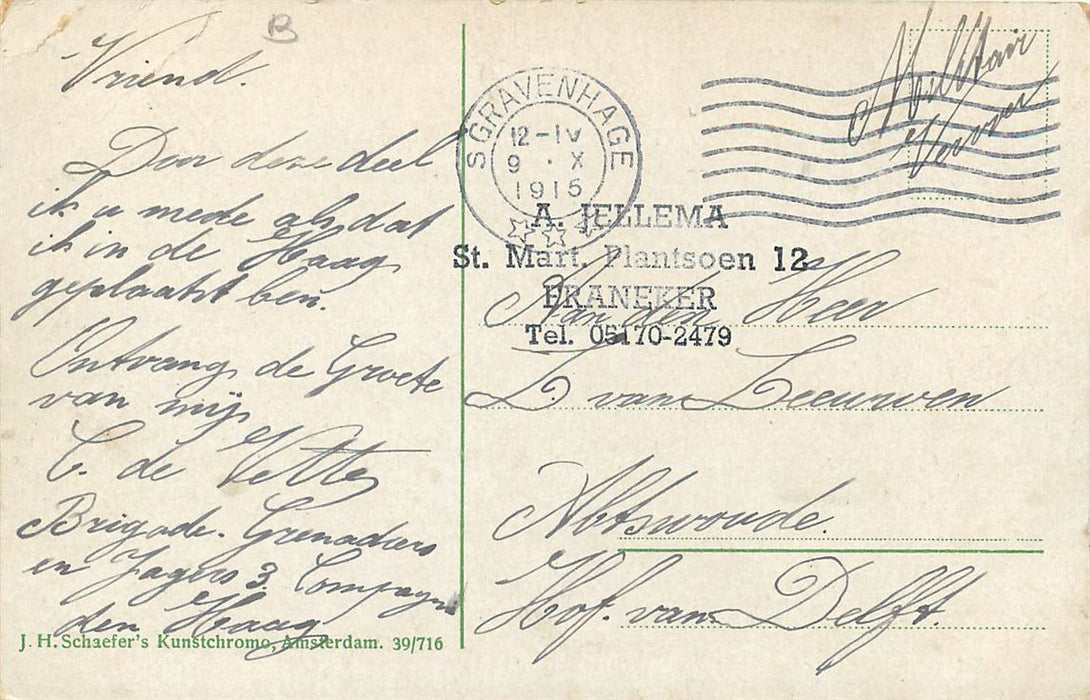 B
Vriend.
Door deze deel
ik u mede als dat
ik in de Haag
geplaatst ben.
Ontvang de Groete
van mij
C. de Vette
Brigade. Grenadiers
en Jagers 3. Compagnie
den Haag
J. H. Schaefer's Kunstchromo, Amsterdam. 39/716
SGRAVENHAGE
12-IV
9 . X
1915
Militair
Verzoon
A. JELLEMA
St. Mart. Plantsoen 12
FRANEKER
Tel. 05170-2479
Aan den Heer
L. van Leeuwen
Abtswoude.
Hof. van Delft.